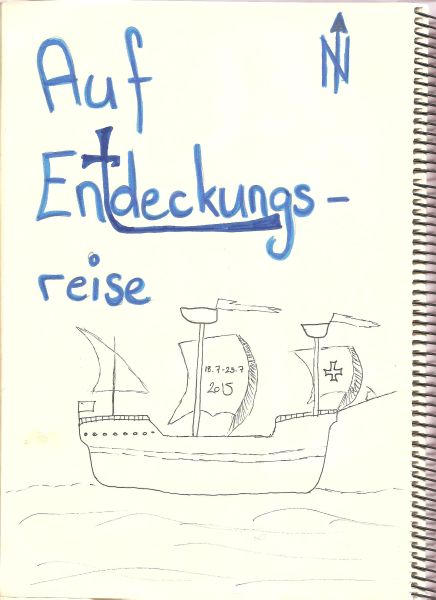 Auf
N
Entdeckungs-
reise
18.7-25.7
2015